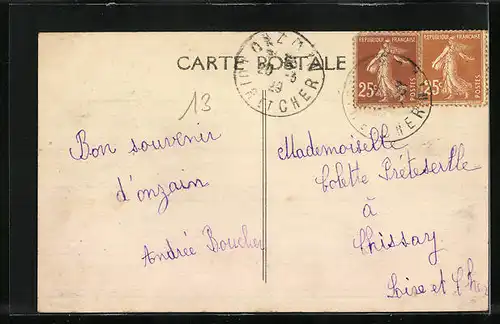 CARTE POSTALE
REPUBLIQUE FRANÇAISE
25c POSTES
REPUBLIQUE FRANÇAISE
25c POSTES
LOIR ET CHER
13
Bon souvenir
d'onzain
Andrée Boucher
Mademoiselle
Colette
à
Chissay
Loire et Cher